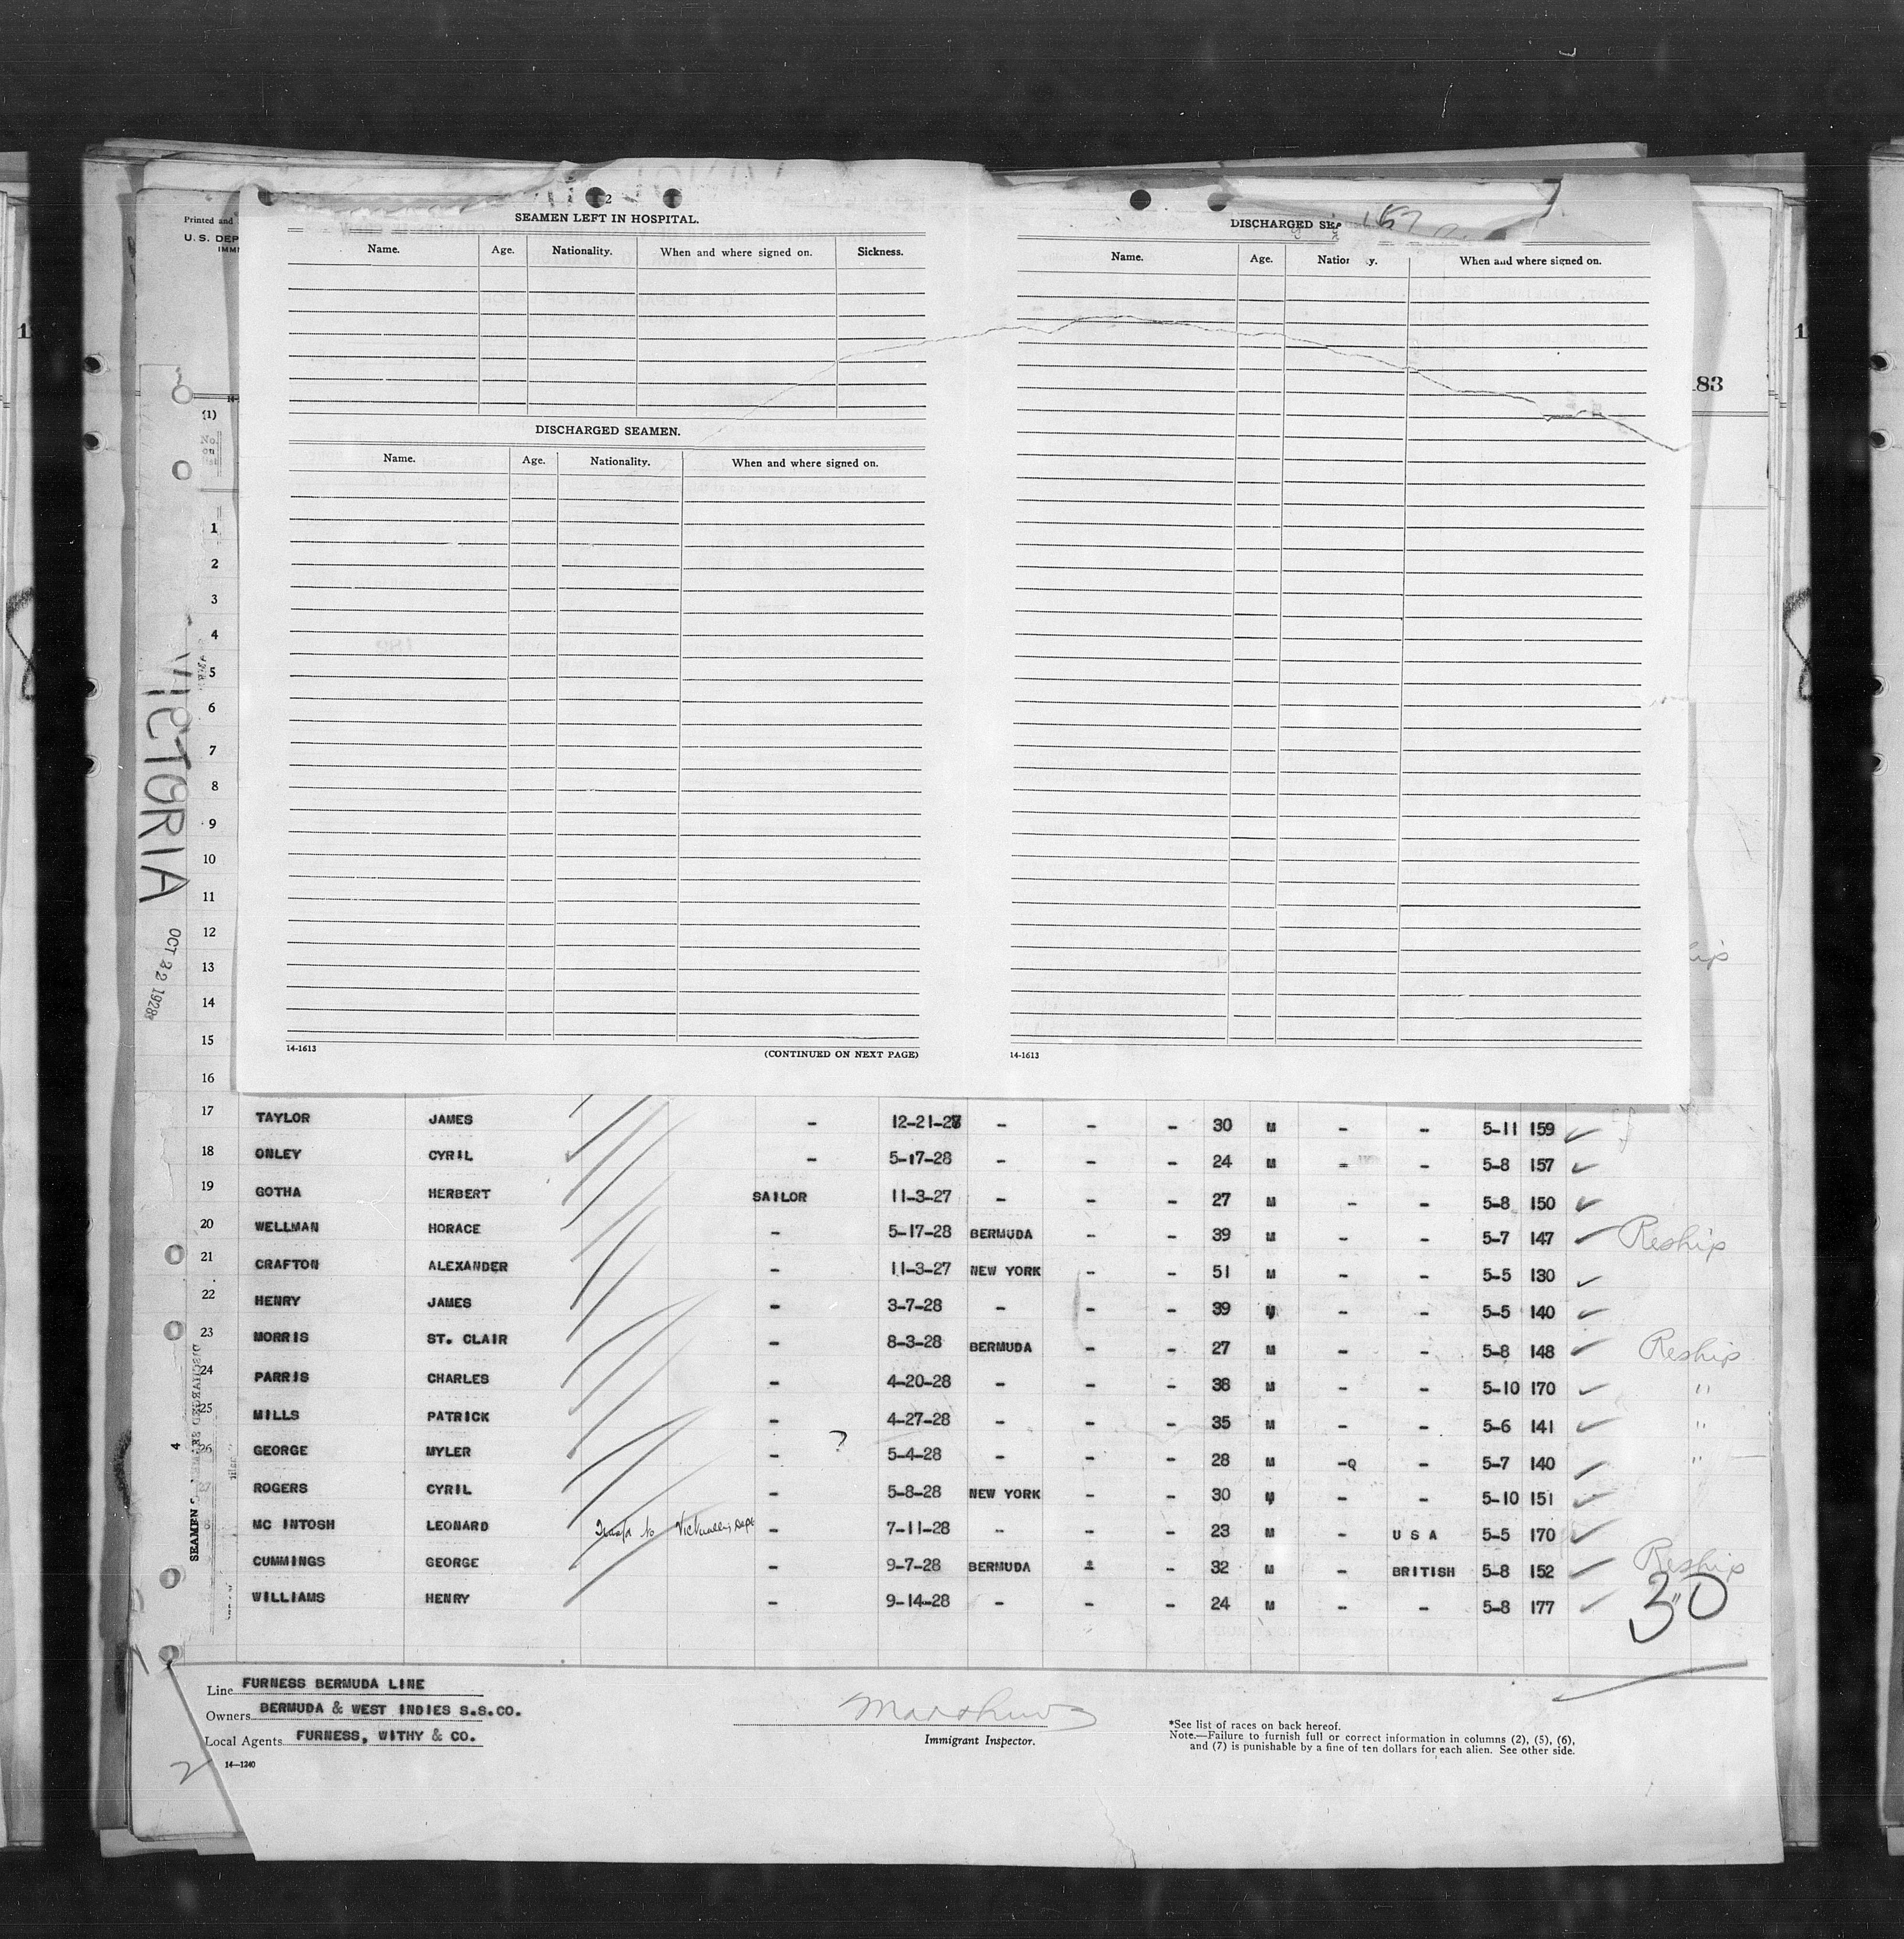 Printed and
U. S. DEP
IMMI
2
SEAMEN LEFT IN HOSPITAL.
Name. Age. Nationality. When and where signed on. Sickness.
DISCHARGED SEAMEN.
Name. Age. Nationality. When and where signed on.
14-1613 (CONTINUED ON NEXT PAGE)
DISCHARGED SEA
Name. Age. Nation y. When and where signed on.
14-1613
183
(1)
No.
on
list
VICTORIA
OCT 22 1928
1
2
3
4
5
6
7
8
9
10
11
12
13
14
15
16
17 TAYLOR JAMES - 12-21-27 - - - 30 M - - 5-11 159
18 ONLEY CYRIL - 5-17-28 - - - 24 M - - 5-8 157
19 GOTHA HERBERT SAILOR 11-3-27 - - - 27 M - - 5-8 150
20 WELLMAN HORACE - 5-17-28 BERMUDA - - 39 M - - 5-7 147 Reship
21 CRAFTON ALEXANDER - 11-3-27 NEW YORK - - 51 M - - 5-5 130
22 HENRY JAMES - 3-7-28 - - - 39 M - - 5-5 140
23 MORRIS ST. CLAIR - 8-3-28 BERMUDA - - 27 M - - 5-8 148 Reship
24 PARRIS CHARLES - 4-20-28 - - - 38 M - - 5-10 170 "
25 MILLS PATRICK - 4-27-28 - - - 35 M - - 5-6 141 "
26 GEORGE MYLER - ? 5-4-28 - - - 28 M -Q - 5-7 140 "
ROGERS CYRIL - 5-8-28 NEW YORK - - 30 M - - 5-10 151
MC INTOSH LEONARD Transf to Victualling Dept - 7-11-28 - - - 23 M - U S A 5-5 170
CUMMINGS GEORGE - 9-7-28 BERMUDA - - 32 M - BRITISH 5-8 152 Reship
WILLIAMS HENRY - 9-14-28 - - - 24 M - - 5-8 177 "
30
4
SEAMEN
DISCHARGED SEAMEN
Line FURNESS BERMUDA LINE
Owners BERMUDA & WEST INDIES S.S.CO.
Local Agents FURNESS, WITHY & CO.
14-1240
Immigrant Inspector.
*See list of races on back hereof.
Note.—Failure to furnish full or correct information in columns (2), (5), (6),
and (7) is punishable by a fine of ten dollars for each alien. See other side.